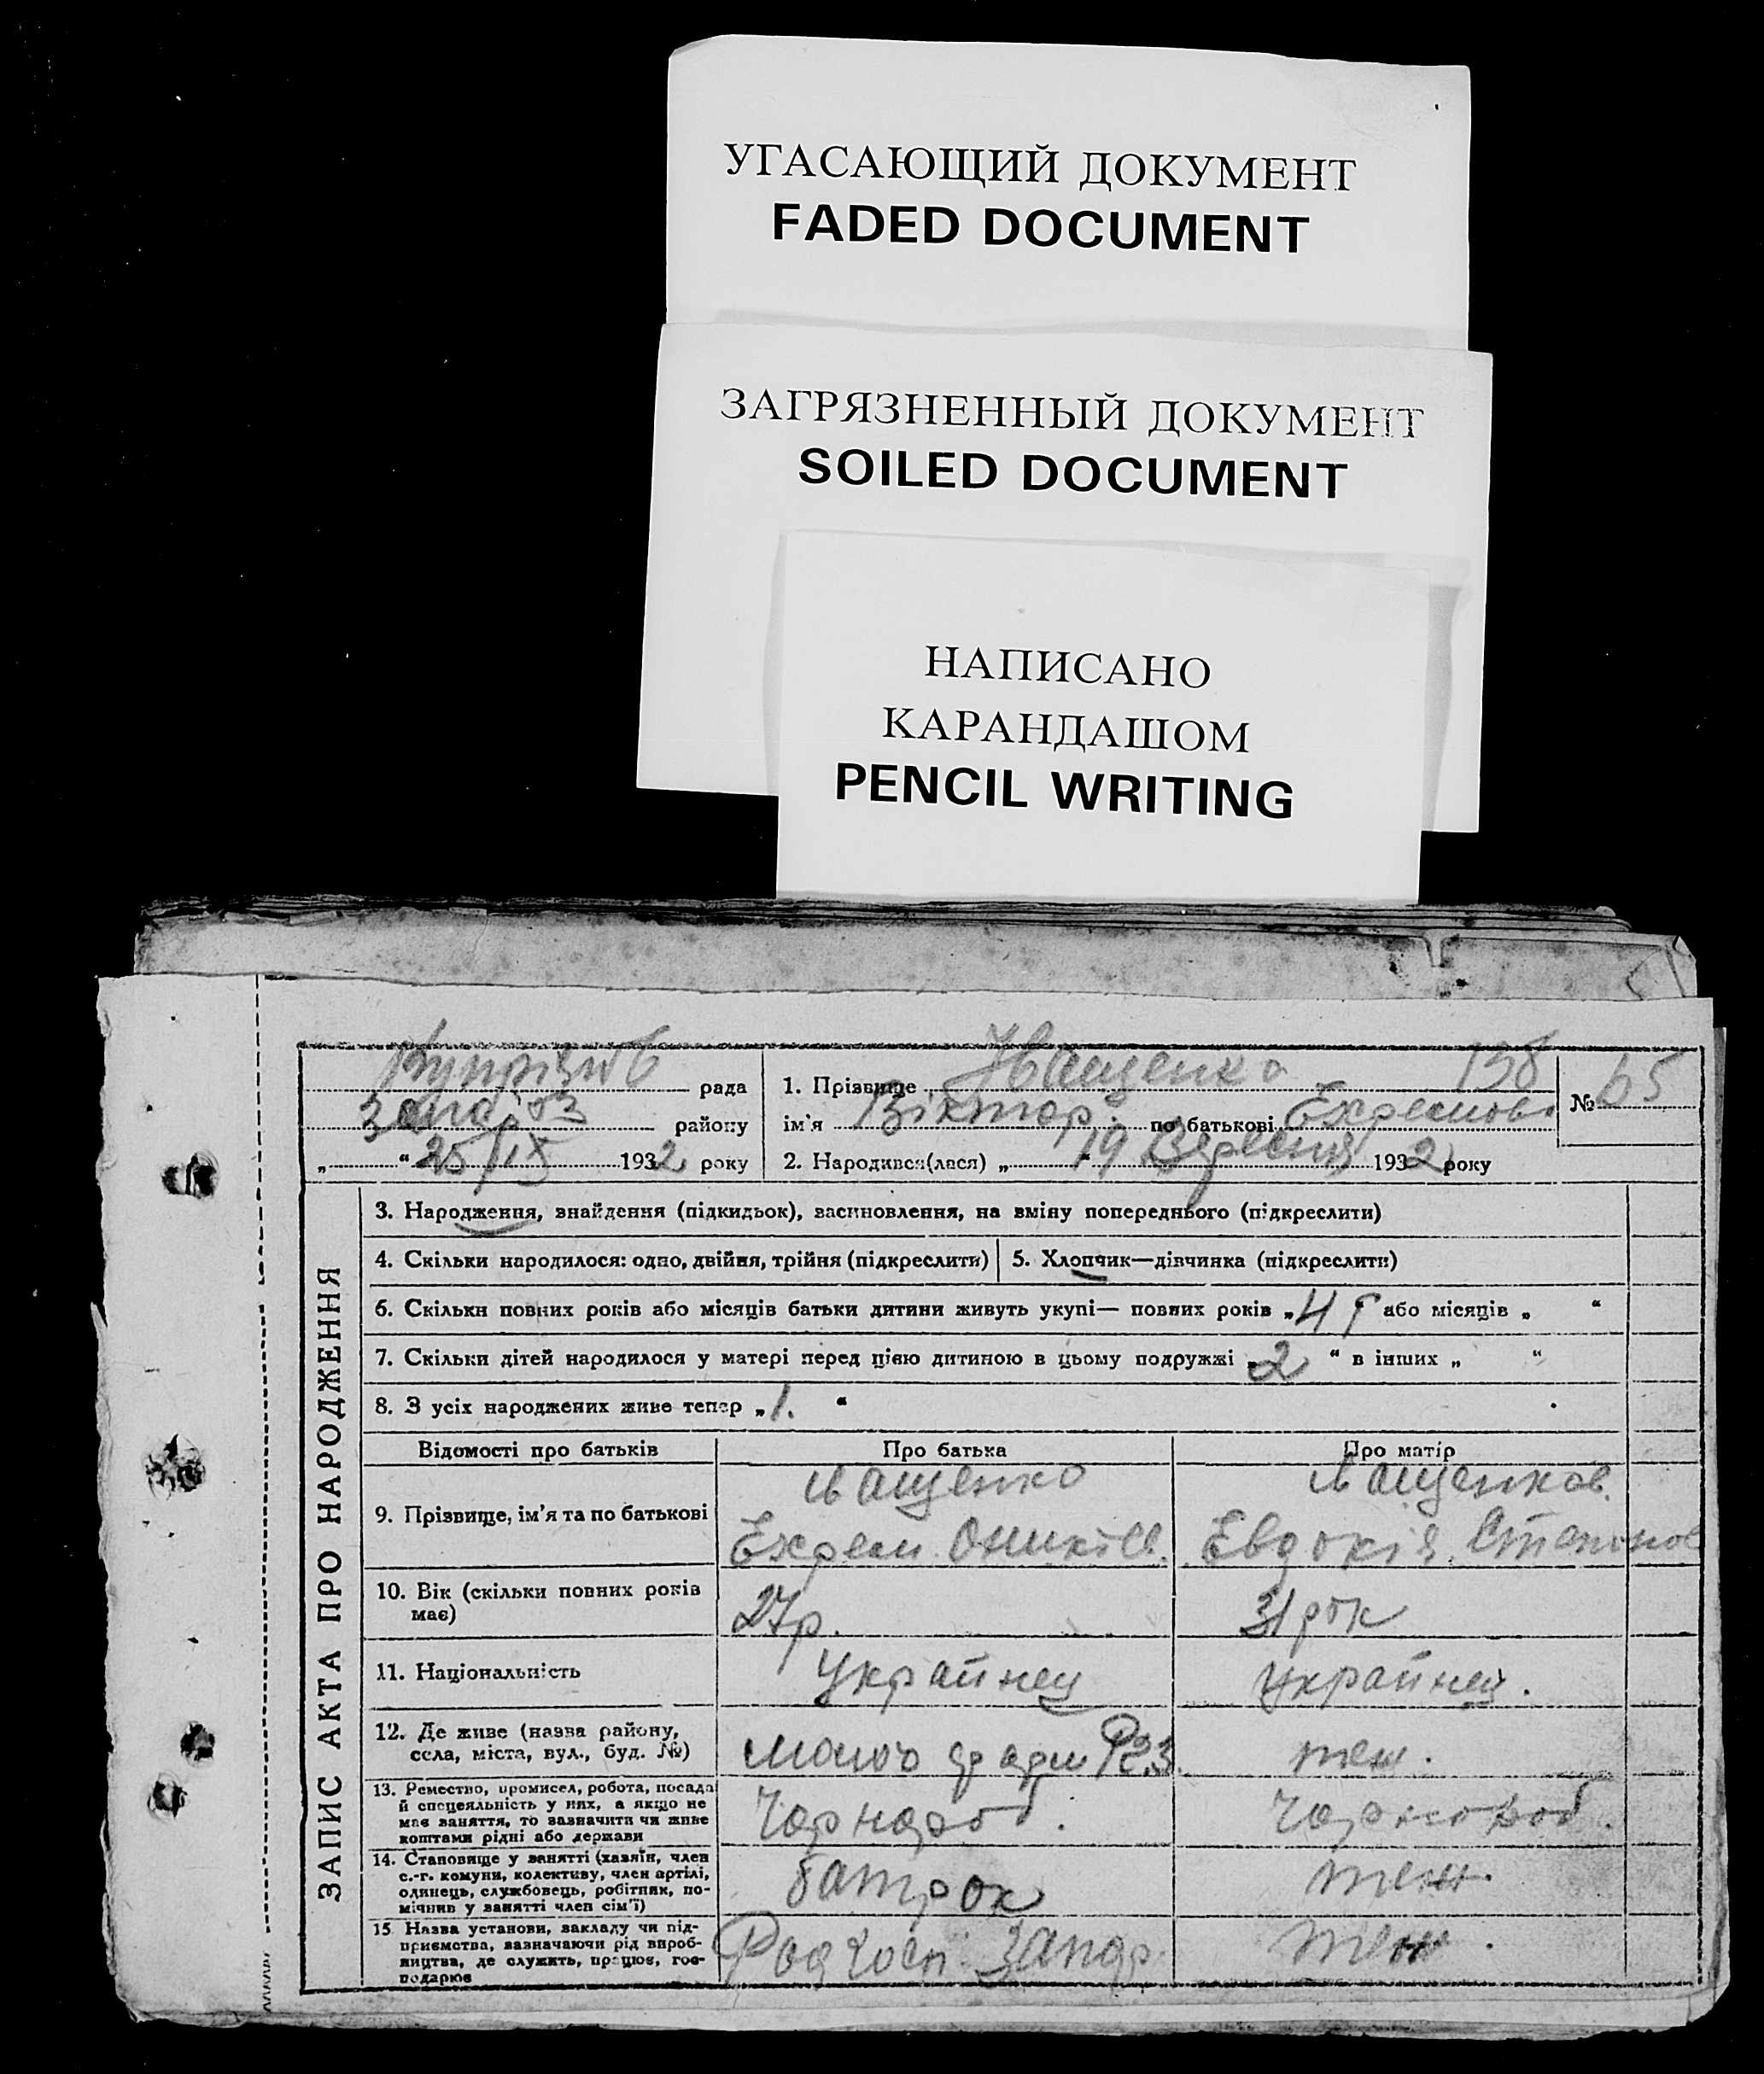 УГАСАЮЩИЙ ДОКУМЕНТ
FADED DOCUMENT
ЗАГРЯЗНЕННЫЙ ДОКУМЕНТ
SOILED DOCUMENT
НАПИСАНО
КАРАНДАШОМ
PENCIL WRITING
рада
району
„ “ 25/IX 1932 року
1. Прізвище Іващенко 138
ім'я Віктор по батькові
2. Народився(лася) „ 19 Вересня 1932 року
№ 65
ЗАПИС АКТА ПРО НАРОДЖЕННЯ
3. Народження, знайдення (підкидьок), всиновлення, на вміну попереднього (підкреслити)
4. Скільки народилося: одно, двійня, трійня (підкреслити)
5. Хлопчик—дівчинка (підкреслити)
6. Скільки повних років або місяців батьки дитини живуть укупі— повних років „4 г “ або місяців „ “
7. Скільки дітей народилося у матері перед цією дитиною в цьому подружжі „2 “ в інших „ “
8. З усіх народжених живе тепер „1. “
Відомості про батьків
Про батька
Про матір
9. Прізвище, ім'я та по батькові
Іващенко
Іващенков.
Евдокія
10. Вік (скільки повних років
має)
27 р.
31 рок
11. Національність
Украйнец
украйнец.
12. Де живе (назва району,
села, міста, вул., буд. №)
теж.
13. Ремество, промисел, робота, посада
й спецеяльність у них, а якщо не
має заняття, то зазначити чи живе
коштами рідні або держави
Чорнороб.
Чорнороб.
14. Становище у занятті (хазяїн, член
с.-г. комуни, колективу, член артілі,
одинець, службовець, робітник, по-
мічник у занятті член сім'ї)
батрок
теж.
15 Назва установи, закладу чи під-
приємства, зазначаючи рід вироб-
ництва, де служить, працює, гос-
подарює
Радгосп
теж.